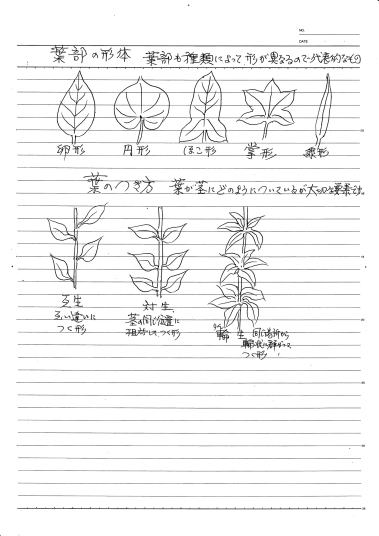 NO.
DATE
葉部の形体 葉部も種類によって形が異なるので代表的なもの
卵形 円形 ほこ形 掌形 線形
葉のつき方 葉が茎にどのようについているかが大切な要素です。
互生 対生 輪生
互い違いに
つく形
茎の同じ位置に
相対してつく形
同じ場所から
輪状に群がって
つく形